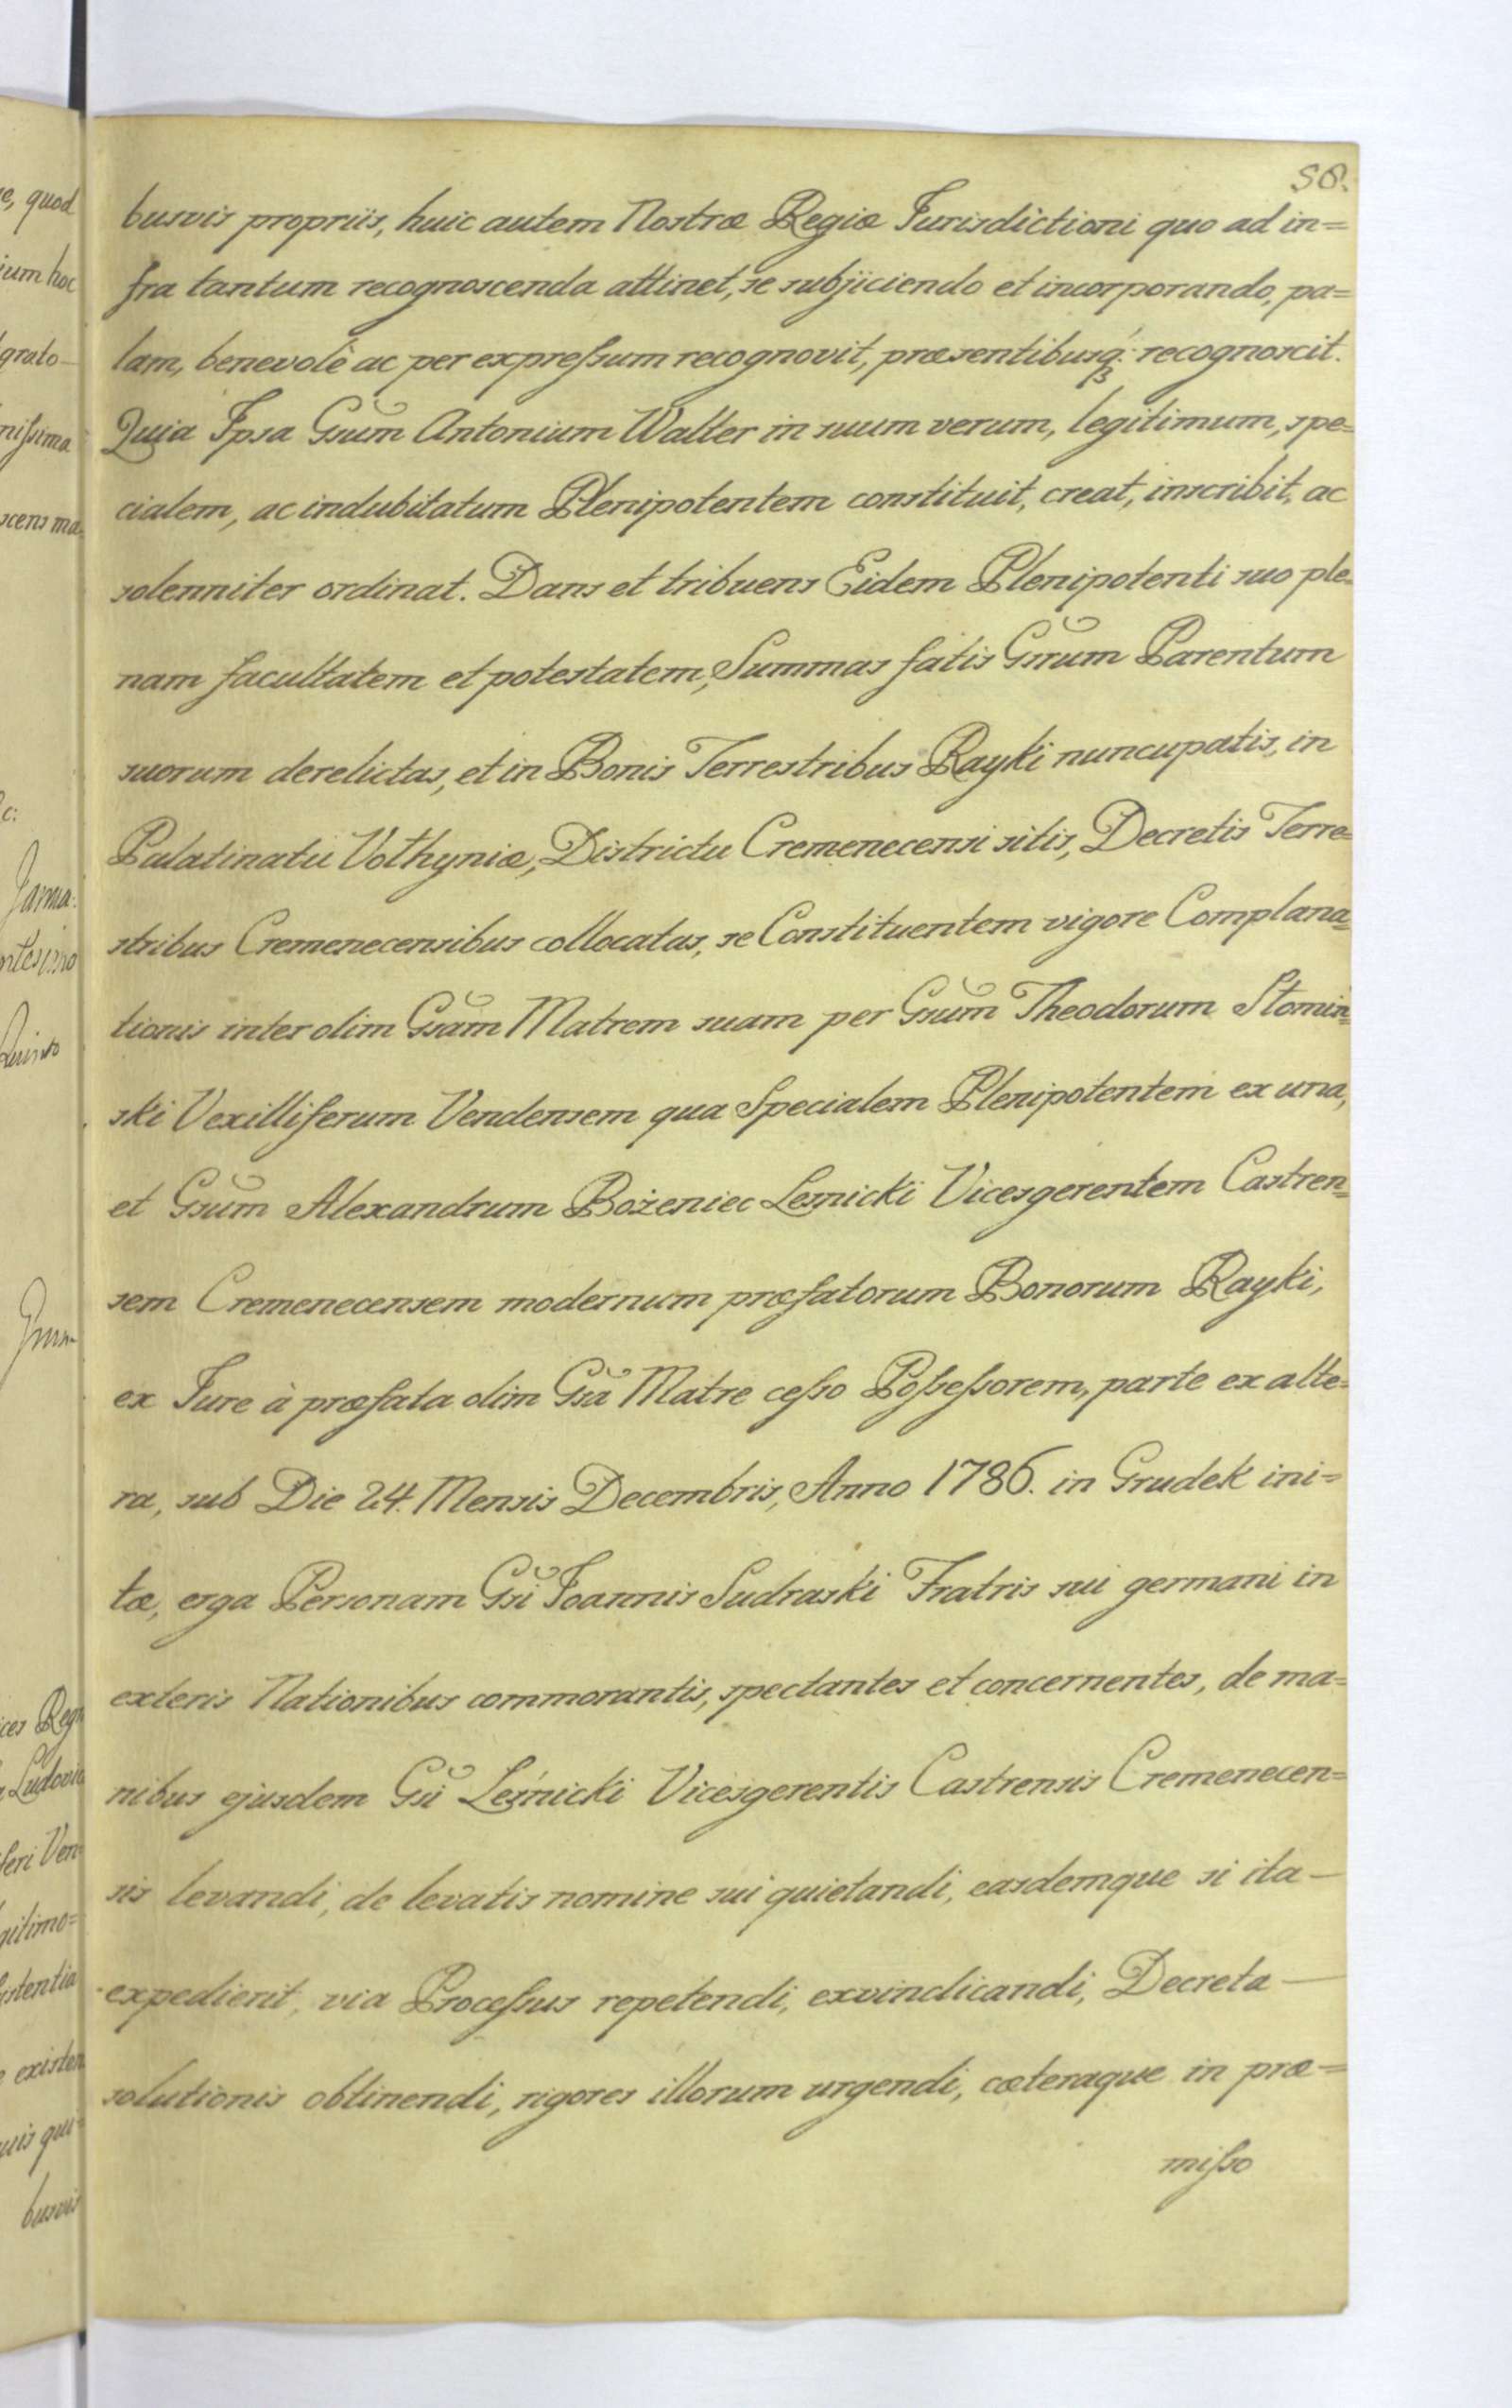 58.
busvis propriis, huic autem Nostræ Regiæ Jurisdictioni quo ad in=
fra tantum recognoscenda attinet, se subjiciendo et incorporando, pa=
lam, benevolè ac per expreſsum recognovit, præsentibusq; recognoscit.
Quia Ipsa Gsum Antonium Walter in suum verum, legitimum, spe=
cialem, ac indubitatum Plenipotentem constituit, creat, inscribit, ac
solenniter ordinat. Dans et tribuens Eidem Plenipotenti suo ple=
nam facultatem et potestatem, Summas fatis Gsrum Parentum
suorum derelictas, et in Bonis Terrestribus Rayki nuncupatis, in
Palatinatu Volhyniæ, Districtu Cremenecensi sitis, Decretis Terre=
stribus Cremenecensibus collocatas, se Constituentem vigore Complana=
tionis inter olim Gsam Matrem suam per Gsum Theodorum Stomin=
ski Vexilliferum Vendensem qua Specialem Plenipotentem ex una,
et Gsum Alexandrum Bożeniec Leśnicki Vicesgerentem Castren=
sem Cremenecensem modernum præfatorum Bonorum Rayki,
ex Jure à præfata olim Gsa Matre ceſso Poſseſsorem, parte ex alte=
ra, sub Die 24. Mensis Decembris, Anno 1786. in Grudek ini=
tæ, erga Personam Gsi Joannis Sudraski Fratris sui germani in
exteris Nationibus commorantis, spectantes et concernentes, de ma=
nibus ejusdem Gsi Leśnicki Vicesgerentis Castrensis Cremenecen=
sis levandi, de levatis nomine sui quietandi, easdemque si ita—
expedierit, via Proceſsus repetendi, exvindicandi, Decreta—
solutionis obtinendi, rigores illorum urgendi, cæteraque in præ=
miſso